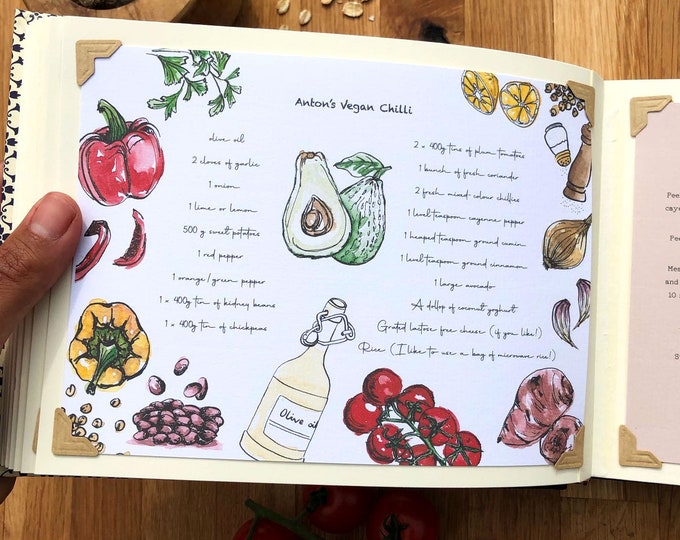 Anton's Vegan Chilli
olive oil
2 cloves of garlic
1 onion
1 lime or lemon
500 g sweet potatoes
1 red pepper
1 orange/green pepper
1 x 400g tin of kidney beans
1 x 400g tin of chickpeas
2 x 400g tins of plum tomatoes
1 bunch of fresh coriander
2 fresh mixed-colour chillies
1 level teaspoon cayenne pepper
1 heaped teaspoon ground cumin
1 level teaspoon ground cinnamon
1 large avocado
A dollop of coconut yoghurt
Grated lactose free cheese (if you like!)
Rice (I like to use a bag of microwave rice!)
Olive oil
Pee
caye
Pee
Mea
and
10 m
S